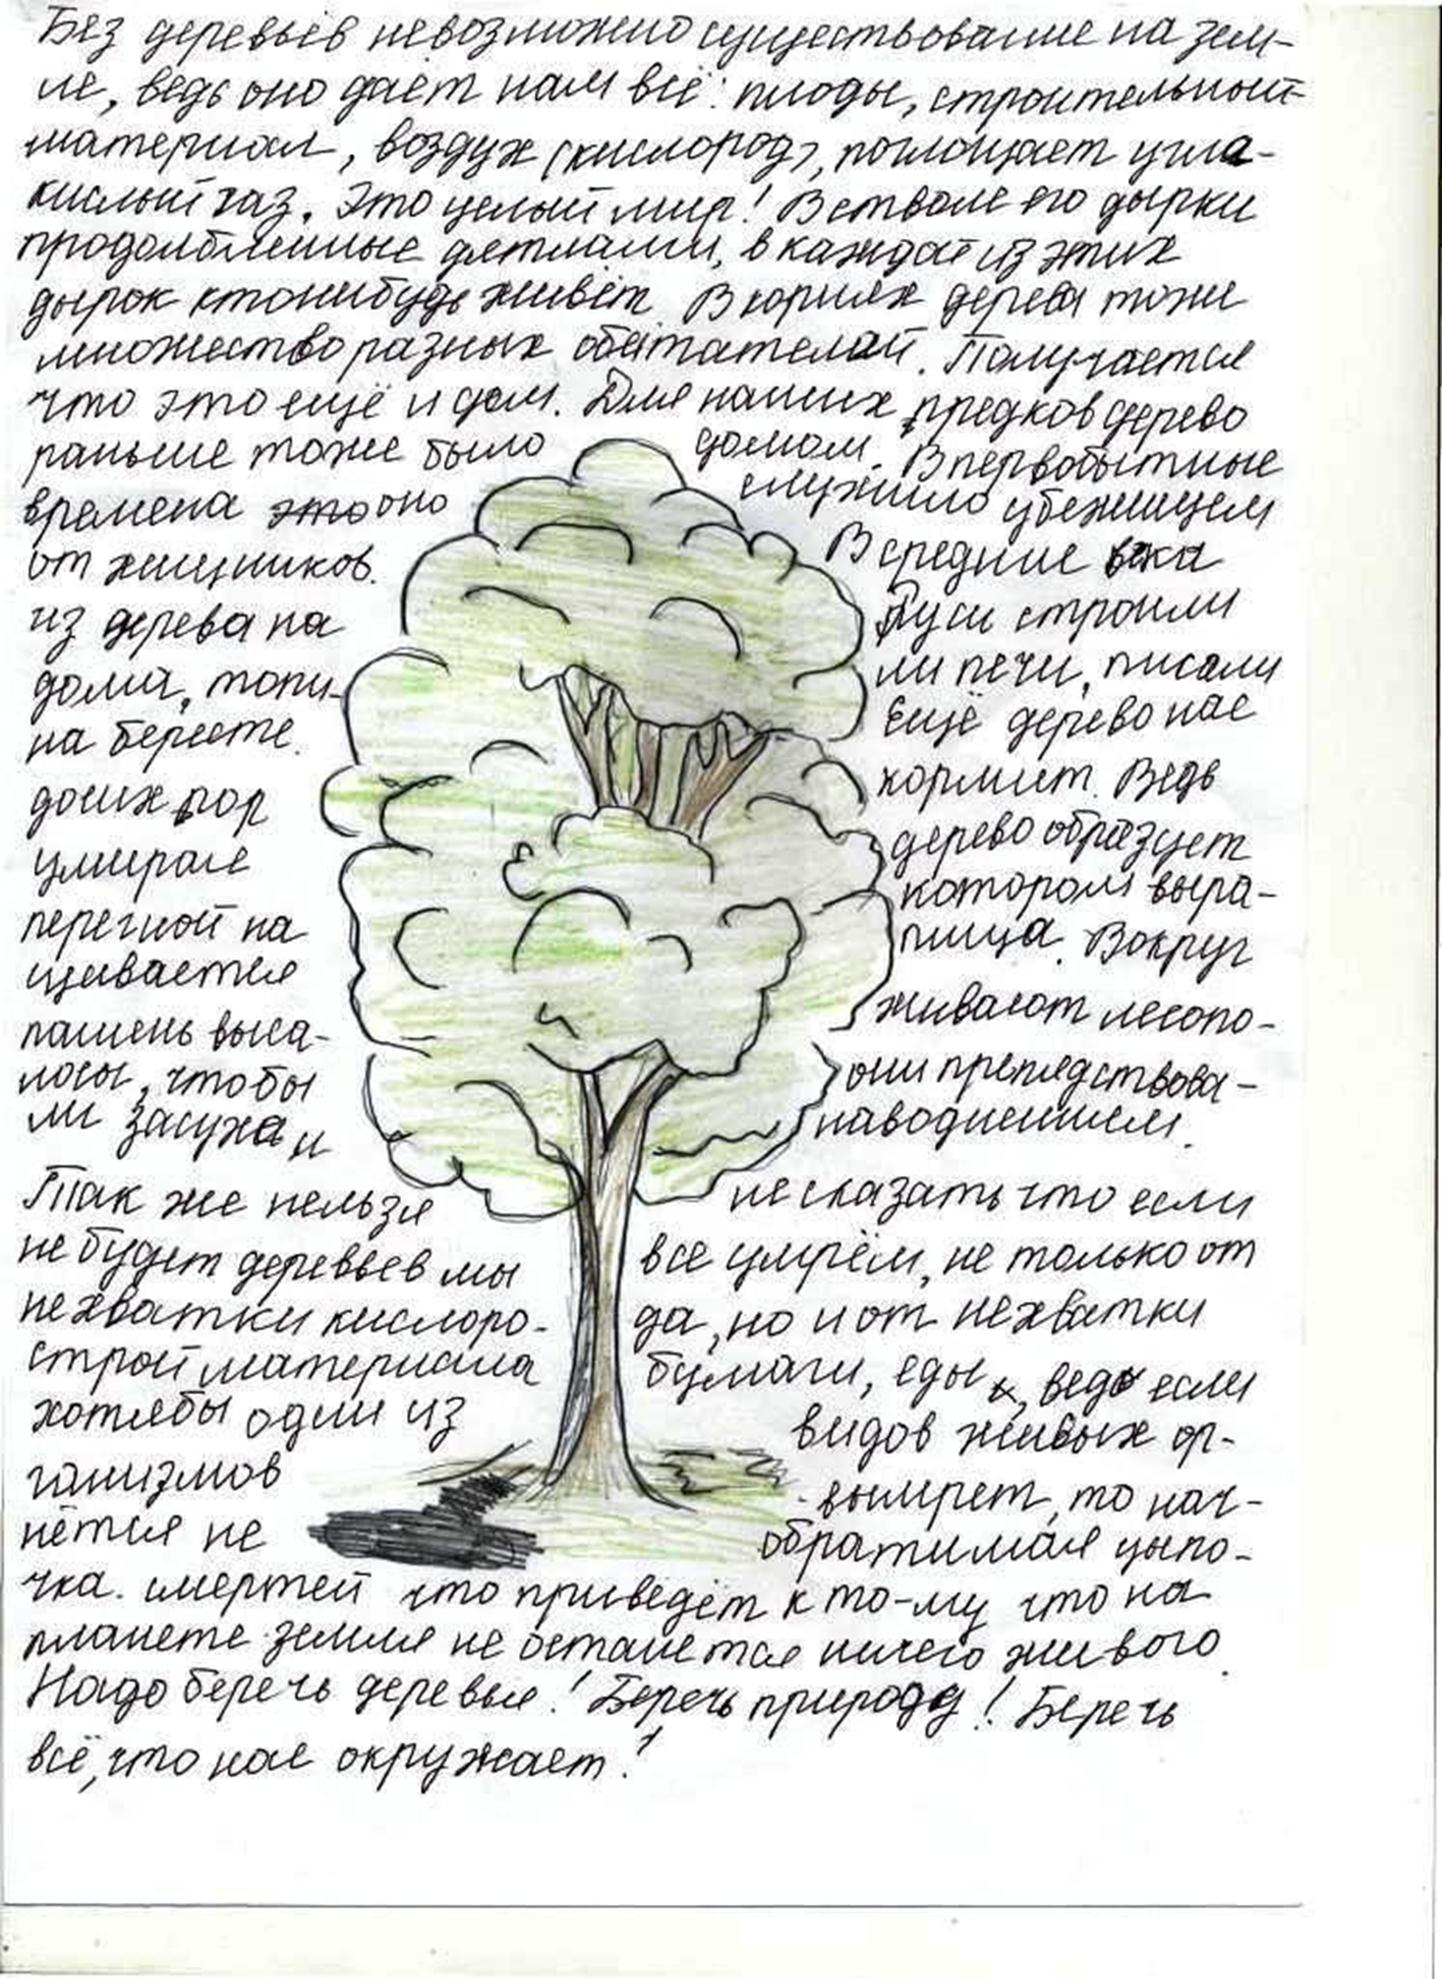 Без деревьев невозможно существование на зем-
ле, ведь оно даёт нам всё: плоды, строительный
материал, воздух (кислород), поглощает угла-
кислый газ. Это целый мир! В стволе его дырки
продолбленные дятлами, в каждой из этих
дырок ктонибудь живёт. В корнях дерева тоже
множество разных обитателей. Получается
что это ещё и дом. Для наших предков дерево
раньше тоже было домом. В первобытные
времена это оно служило убежищем
от хищников. В средние века
из дерева на Руси строили
дома, топи- ли печи, писали
на бересте. Ещё дерево нас
досих пор кормит. Ведь
умирая дерево образует
перегной на котором выра-
щивается пища. Вокруг
пашень выса- живают лесопо-
лосы, чтобы они препядствова-
ли засухам и наводнениям.
Так же нельзя не сказать что если
не будет деревьев мы все умрём, не только от
нехватки кислоро- да, но и от нехватки
строй материала бумаги, еды, ведь если
хотябы один из видов живых ор-
ганизмов вымрет, то нач-
нётся не обратимая цыпо-
чка смертей что приведёт к то-му что на
планете земля не останется ничего живого.
Надо беречь деревья! Беречь природу! Беречь
всё, что нас окружает!